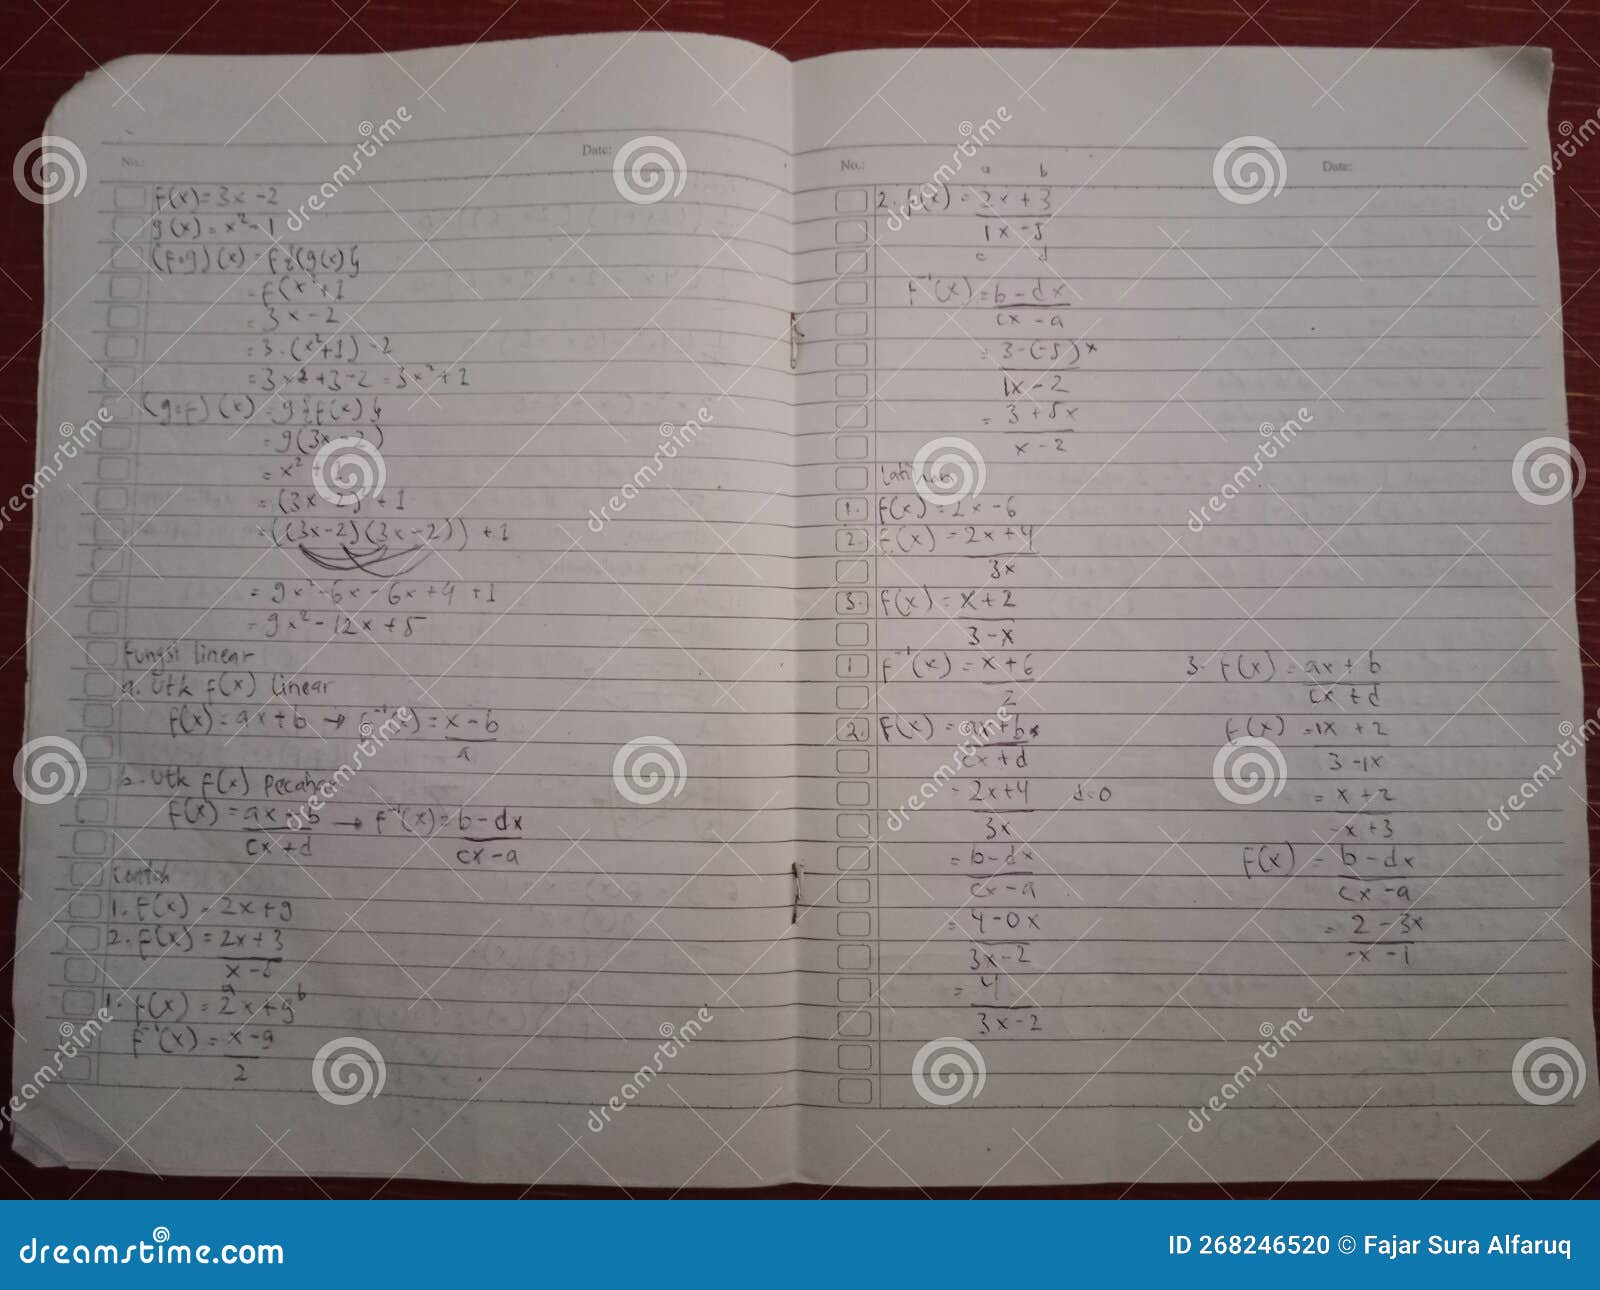 No.:
Date:
f(x) = 3x - 2
g(x) = x² - 1
(f∘g)(x) = f{(g(x)}
= f(x²+1
= 3x - 2
= 3·(x²+1) - 2
= 3x²+3-2 = 3x²+1
(g∘f)(x) = g{f(x)}
= g(3x-2)
= x² + 1
= (3x-2) + 1
= ((3x-2)(3x-2)) + 1
= 9x²-6x-6x+4+1
= 9x²-12x+5
Fungsi linear
a. Utk f(x) linear
f(x) = ax+b → f⁻¹(x) = x-b
a
b. Utk f(x) Pecahan
f(x) = ax+b → f⁻¹(x) = b-dx
cx+d cx-a
Contoh
1. f(x) = 2x+9
2. f(x) = 2x+3
x-5
a b
1. f(x) = 2x+9
f⁻¹(x) = x-9
2
No.:
Date:
a b
2. f(x) = 2x+3
1x-5
c d
f⁻¹(x) = b-dx
cx-a
= 3-(-5)x
1x-2
= 3+5x
x-2
Latihan
1. f(x) = 2x-6
2. f(x) = 2x+4
3x
3. f(x) = x+2
3-x
1 f⁻¹(x) = x+6
2
2. f(x) = ax+b
cx+d
= 2x+4 d=0
3x
= b-dx
cx-a
= 4-0x
3x-2
= 4
3x-2
3. f(x) = ax+b
cx+d
f(x) = 1x+2
3-1x
= x+2
-x+3
f(x) = b-dx
cx-a
= 2-3x
-x-1
dreamstime
dreamstime.com
ID 268246520 © Fajar Sura Alfaruq